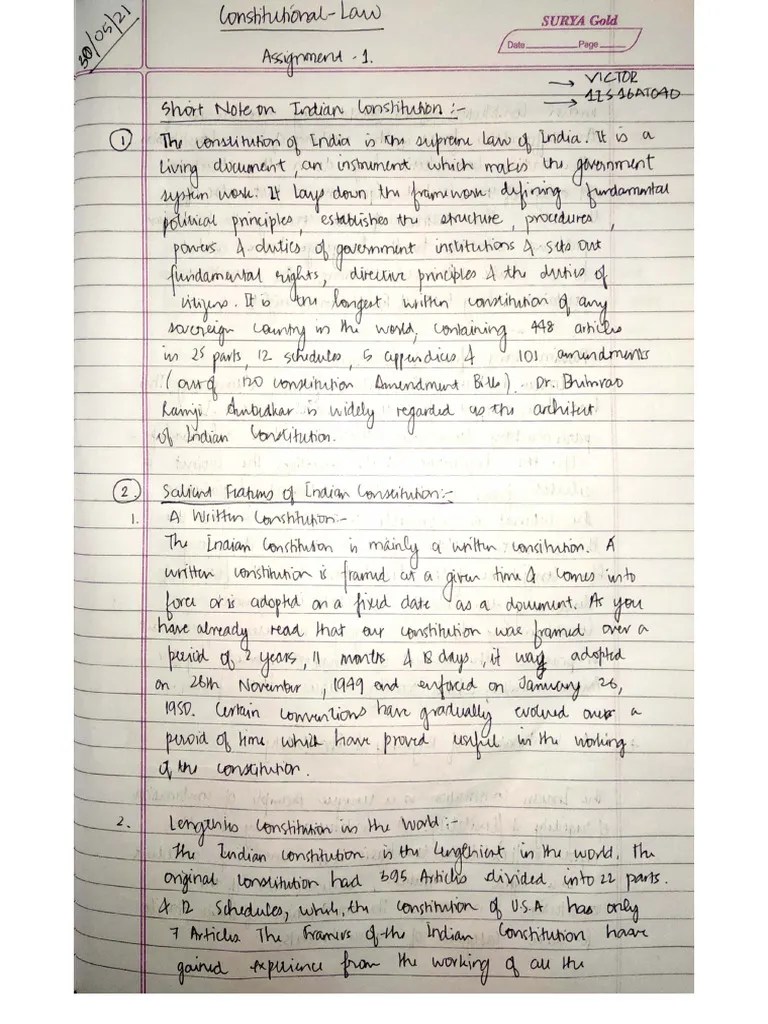 30/05/21
Constitutional-Law
SURYA Gold
Date Page
Assignment - 1.
→ VICTOR
→ 1ZS16AT040
Short Note on Indian Constitution :-
1 The constitution of India is the supreme law of India. It is a
living document, an instrument which makes the government
system work. It lays down the framework defining fundamental
political principles, establishes the structure, procedures,
powers & duties of government institutions & sets out
fundamental rights, directive principles & the duties of
citizens. It is the longest written constitution of any
sovereign country in the world, containing 448 articles
in 25 parts, 12 schedules, 5 appendices & 101 amendments
(out of 120 constitution Amendment Bills). Dr. Bhimrao
Ramji Ambedkar is widely regarded as the architect
of Indian Constitution.
2. Salient Features of Indian Constitution:-
1. A Written Constitution:-
The Indian Constitution is mainly a written constitution. A
written constitution is framed at a given time & comes into
force or is adopted on a fixed date as a document. As you
have already read that our constitution was framed over a
period of 2 years, 11 months & 18 days, it was adopted
on 26th November, 1949 and enforced on January 26,
1950. Certain conventions have gradually evolved over a
peroid of time which have proved useful in the working
of the constitution.
2. Lengthies Constitution in the World:-
The Indian constitution is the Lengthiest in the world. The
original constitution had 395 Articles divided into 22 parts.
& 12 Schedules, which, the constitution of U.S.A has only
7 Articles. The Framers of the Indian Constitution have
gained experience from the working of all the